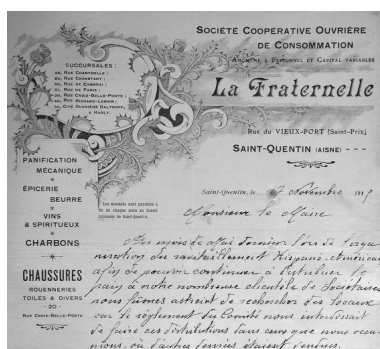 SOCIÉTÉ COOPÉRATIVE OUVRIÈRE
DE CONSOMMATION
ANONYME À PERSONNEL ET CAPITAL VARIABLES
La Fraternelle
Rue du VIEUX-PORT (Saint-Prix)
SAINT-QUENTIN (AISNE)
SUCCURSALES :
RUE CHANTRELLE
RUE CRONSTADT
RUE DE CAMBRAI
RUE DE PARIS
RUE CROIX-BELLE-PORTE
RUE RICHARD-LENOIR
CITÉ OUVRIÈRE
À HARLY.
PANIFICATION
MÉCANIQUE
ÉPICERIE
BEURRE
VINS
& SPIRITUEUX
CHARBONS
CHAUSSURES
ROUENNERIES
TOILES & DIVERS
- 20 -
RUE CROIX-BELLE-PORTE
Les mandats sont payables à
Saint-Quentin, le 7 Novembre 191
Monsieur le Maire
Au mois de Mai dernier lors de l'orga
nisation du ravitaillement Hispano-américain
afin de pouvoir continuer à distribuer le
pain à notre nombreuse clientèle de Sociétaires
nous fûmes astreint de rechercher des locaux
car le règlement du Comité nous interdisait
de faire ces distributions dans ceux que nous occu-
pions, où d'autres denrées étaient vendues.